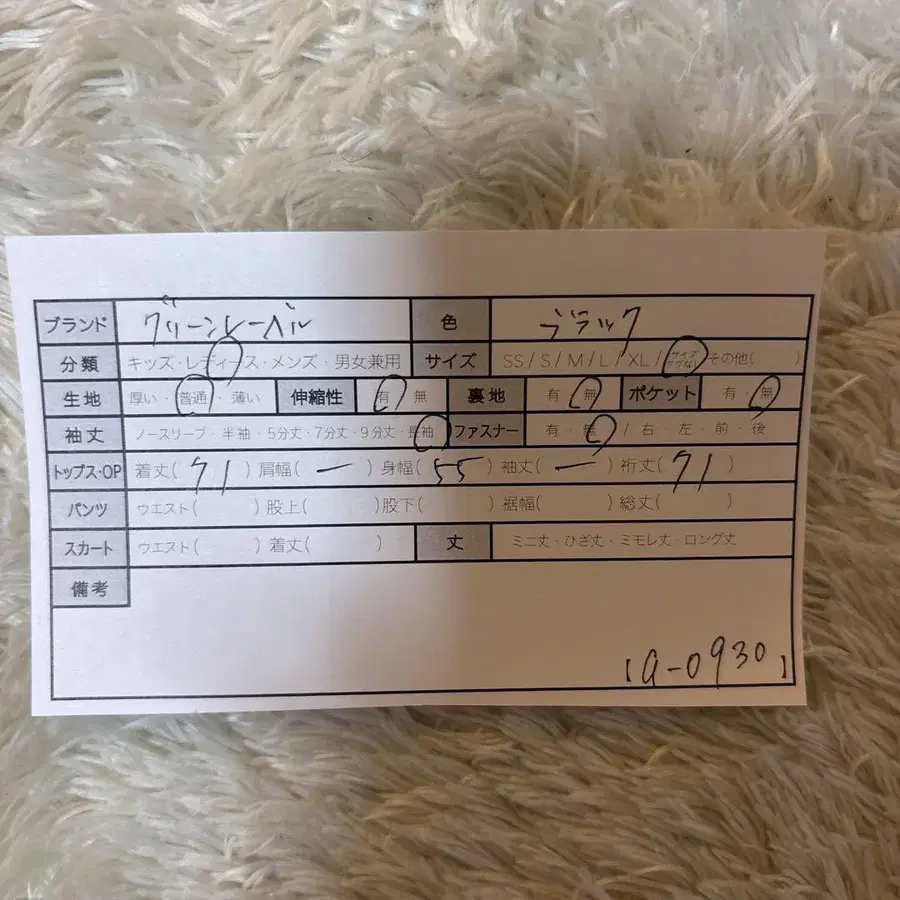 ブランド グリーンレーベル 色 ブラック
分類 キッズ・レディース・メンズ・男女兼用 サイズ SS / S / M / L / XL / サイズタグなし その他( )
生地 厚い・普通・薄い 伸縮性 有・無 裏地 有・無 ポケット 有・無
袖丈 ノースリーブ・半袖・5分丈・7分丈・9分丈・長袖 ファスナー 有・無 / 右・左・前・後
トップス・OP 着丈( 71 ) 肩幅( ー ) 身幅( 55 ) 袖丈( ー ) 裄丈( 71 )
パンツ ウエスト( ) 股上( ) 股下( ) 裾幅( ) 総丈( )
スカート ウエスト( ) 着丈( ) 丈 ミニ丈・ひざ丈・ミモレ丈・ロング丈
備考
【a-0930】